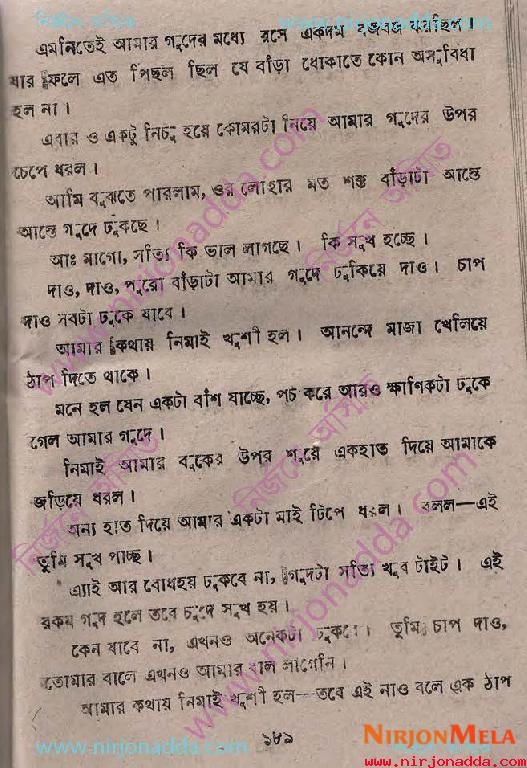 নির্জনে অসিত
www.nirjonadda.com
এমনিতেই আমার গুদের মধ্যে রসে একদম
যার ফলে এত পিছল ছিল যে বাঁড়া ঢোকাতে কোন অসুবিধা
হল না।
এবার ও একটু নিচু হয়ে কোমরটা নিয়ে আমার গুদের উপর
চেপে ধরল।
আমি বুঝতে পারলাম, ওর লোহার মত শক্ত বাঁড়াটা আস্তে
আস্তে গুদে ঢুকছে।
আঃ মাগো, সত্যি কি ভাল লাগছে। কি সুখ হচ্ছে।
দাও, দাও, পুরো বাঁড়াটা আমার গুদে ঢুকিয়ে দাও। চাপ
দাও সবটা ঢুকে যাবে।
আমার কথায় নিমাই খুশী হল। আনন্দে মাজা খেলিয়ে
ঠাপ দিতে থাকে।
মনে হল যেন একটা বাঁশ যাচ্ছে, পচ করে আরও খানিকটা ঢুকে
গেল আমার গুদে।
নিমাই আমার বুকের উপর শুয়ে একহাত দিয়ে আমাকে
জড়িয়ে ধরল।
অন্য হাত দিয়ে আমার একটা মাই টিপে ধরল। বলল—এই
তুমি সুখ পাচ্ছ।
এ্যাই আর বোধহয় ঢুকবে না, গুদটা সত্যি খুব টাইট। এই
রকম গুদ হলে তবে চুদে সুখ হয়।
কেন যাবে না, এখনও অনেকটা ঢুকবে। তুমি চাপ দাও,
তোমার বালে এখনও আমার বাল লাগেনি।
আমার কথায় নিমাই খুশী হল—তবে এই নাও বলে এক ঠাপ
১৮৯
www.nirjonadda.com
NIRJONMELA
www.nirjonadda.com